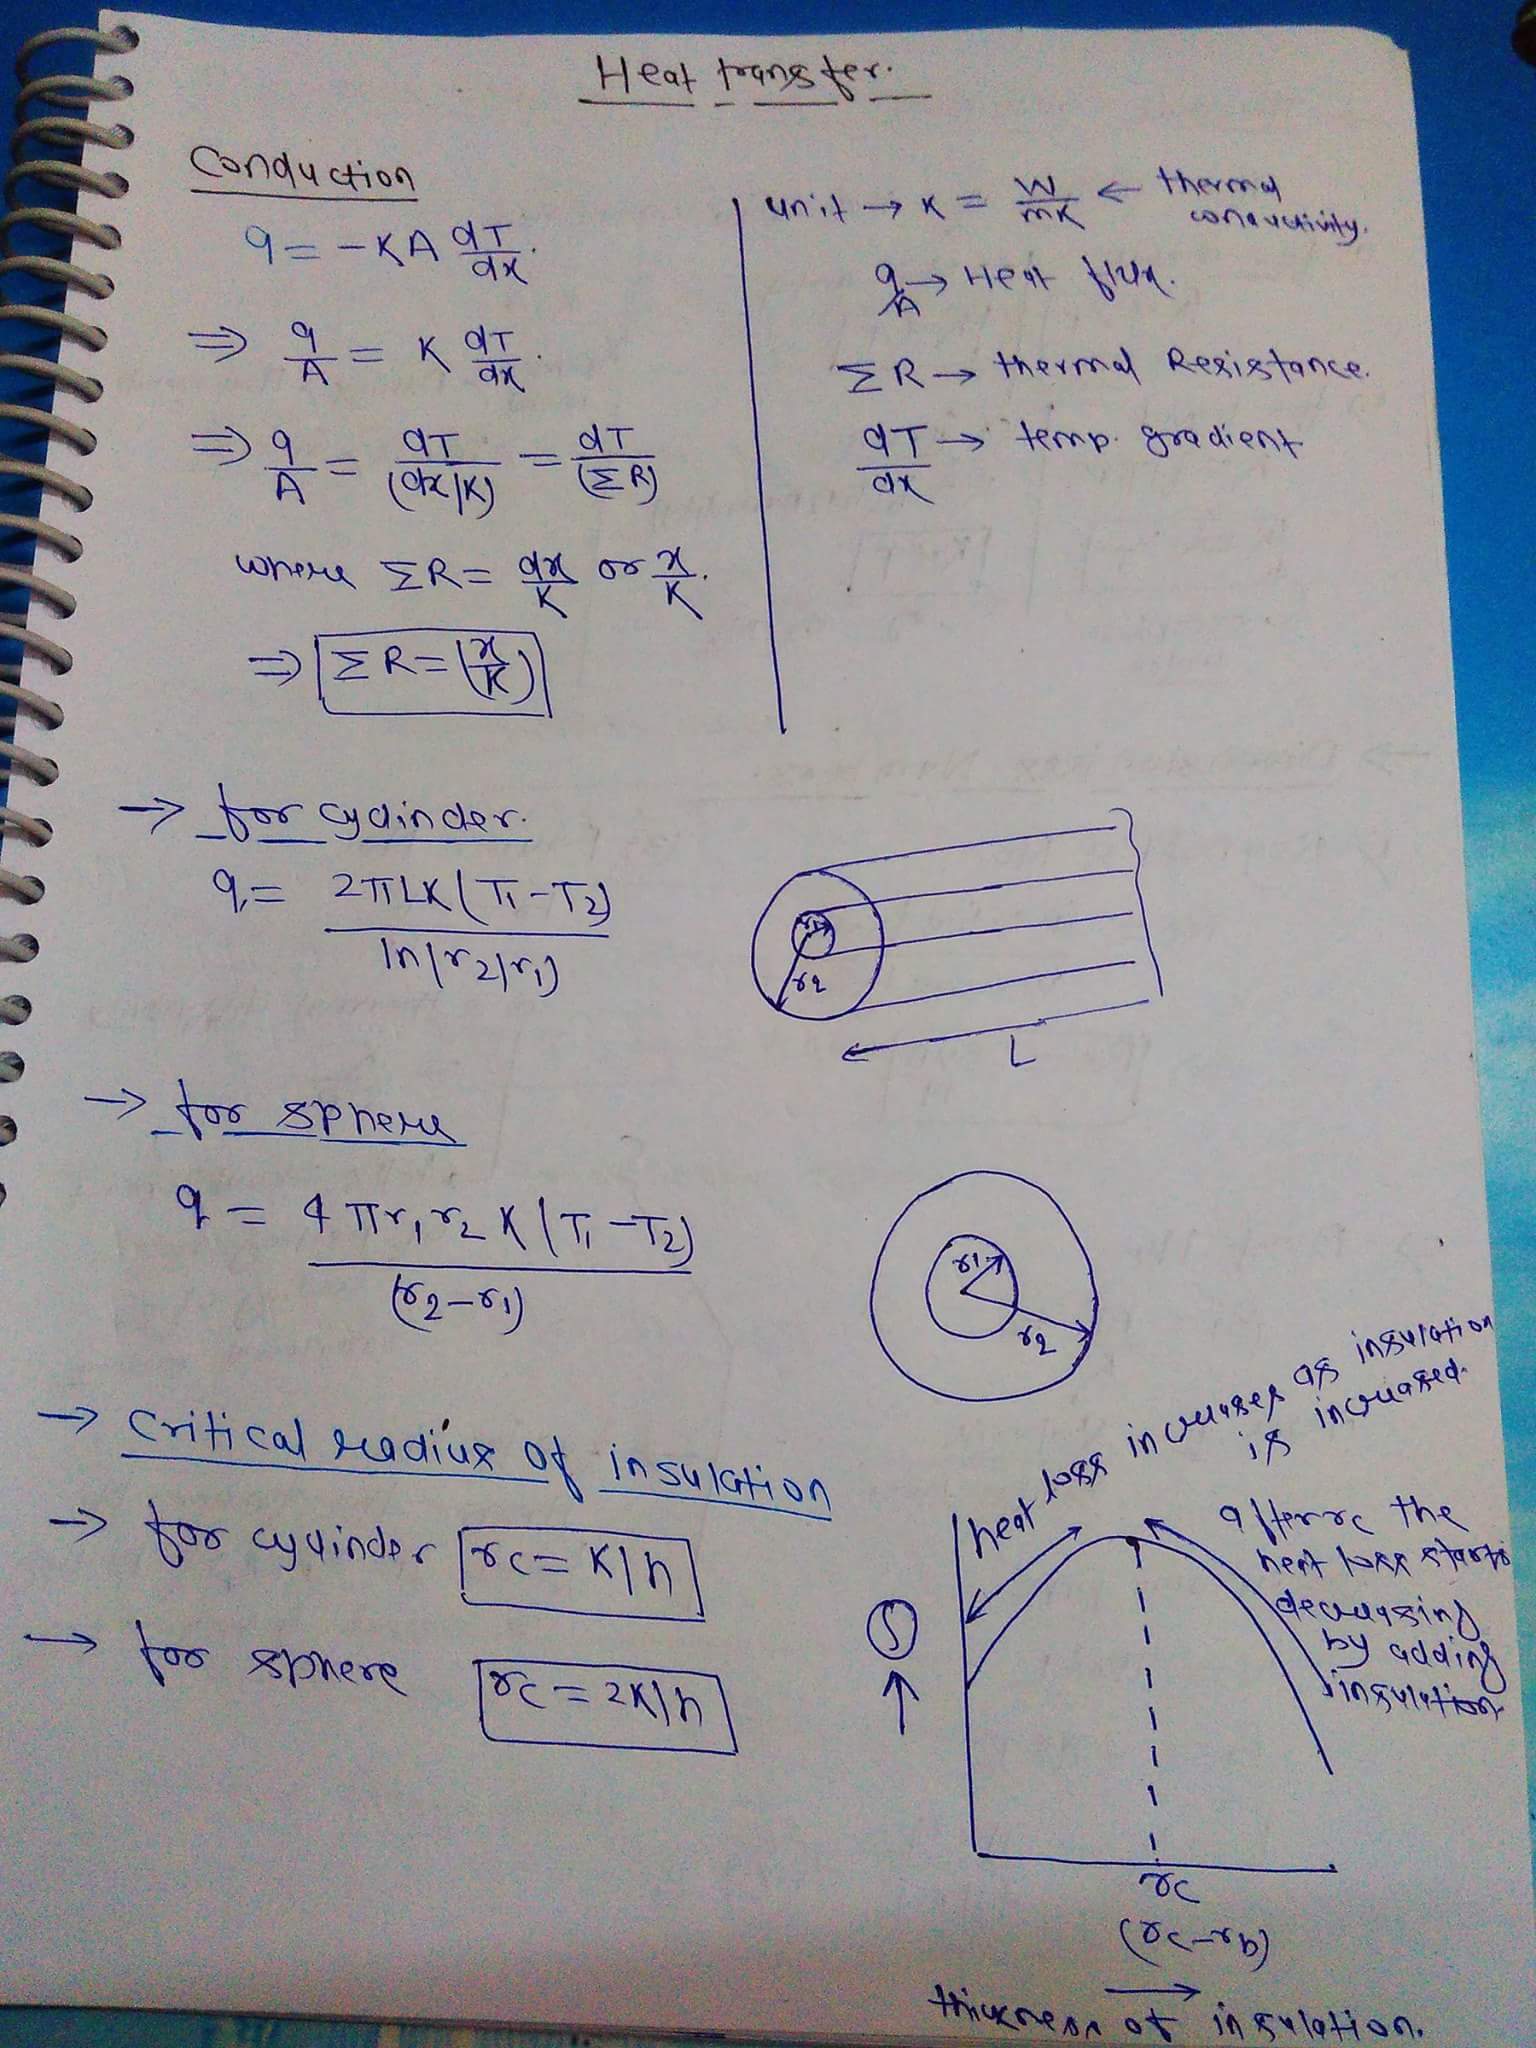 Heat transfer.
Conduction
q = -KA dT/dx.
⇒ q/A = K dT/dx.
⇒ q/A = dT/(dx/K) = dT/(ΣR)
where ΣR = dx/K or x/K.
⇒ ΣR = (x/K)
unit → K = W/mK ← thermal
conductivity.
q/A → Heat flux.
ΣR → thermal Resistance.
dT/dx → temp. gradient
→ for cylinder.
q = 2πLK(T1-T2)/ln(r2/r1)
r1
r2
L
→ for sphere
q = 4πr1r2K(T1-T2)/(r2-r1)
r1
r2
→ Critical radius of insulation
→ for cylinder rc = K/h
→ for sphere rc = 2K/h
heat loss increases as insulation
is increased.
after rc the
heat loss starts
decreasing
by adding
insulation.
↑
rc
(rc-rb)
→
thickness of insulation.